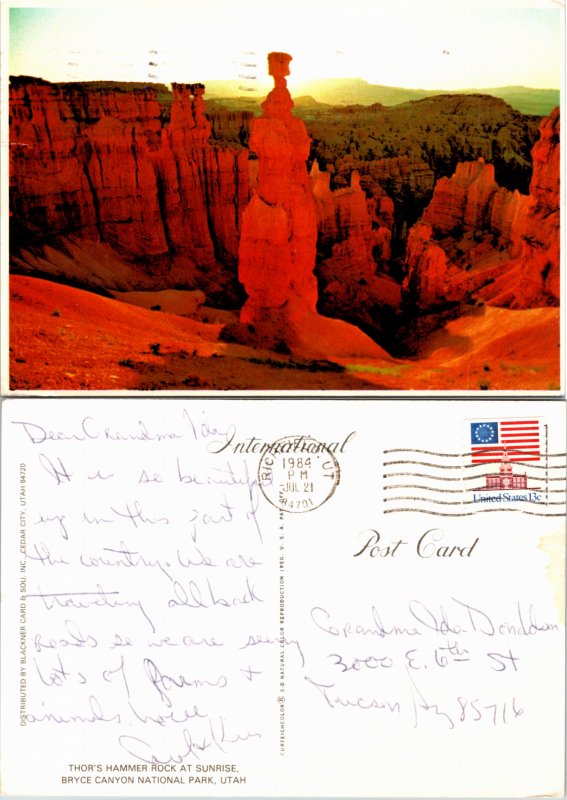 Dear Grandma Ida,
It is so beautiful
up in this part of
the country. We are
traveling all back
roads so we are seeing
lots of farms &
animals.
International
RICHFIELD, UT
1984
PM
JUL 21
84701
United States 13c
Post Card
Grandma Ida Donaldson
3000 E. 6th St
Tucson, Az 85716
DISTRIBUTED BY BLACKNER CARD & SOU. INC., CEDAR CITY, UTAH 84720
CURTEICHCOLOR® 3-D NATURAL COLOR REPRODUCTION (REG. U. S. A. PAT. OFF.)
THOR'S HAMMER ROCK AT SUNRISE,
BRYCE CANYON NATIONAL PARK, UTAH